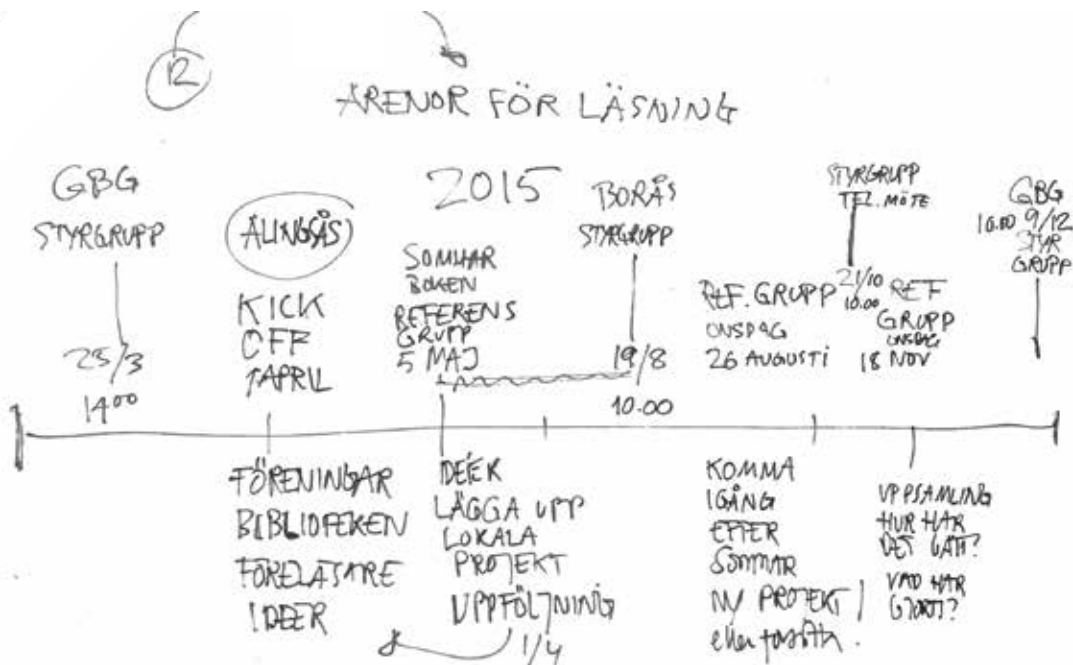 12
ARENOR FÖR LÄSNING
2015
GBG
STYRGRUPP
25/3
14.00
ALINGSÅS
KICK
OFF
1 APRIL
SOMMAR
BOKEN
REFERENS
GRUPP
5 MAJ
BORÅS
STYRGRUPP
19/8
10.00
REF. GRUPP
ONSDAG
26 AUGUSTI
STYRGRUPP
TEL. MÖTE
21/10
10.00
REF
GRUPP
ONSDAG
18 NOV
GBG
10.00 9/12
STYR
GRUPP
FÖRENINGAR
BIBLIOTEKEN
FÖRELÄSARE
IDEER
IDÉER
LÄGGA UPP
LOKALA
PROJEKT
UPPFÖLJNING
1/4
KOMMA
IGÅNG
EFTER
SOMMAR
PROJEKT
eller
UPPSAMLING
HUR HAR
DET GÅTT?
VAD HAR
GJORTS?